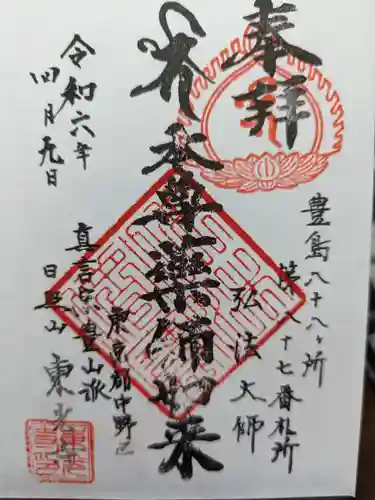 奉拝
豊島八十八ヶ所
第八十七番札所
弘法大師
本尊薬師如来
東京都中野区
真言宗豊山派
令和六年
四月九日
東光寺